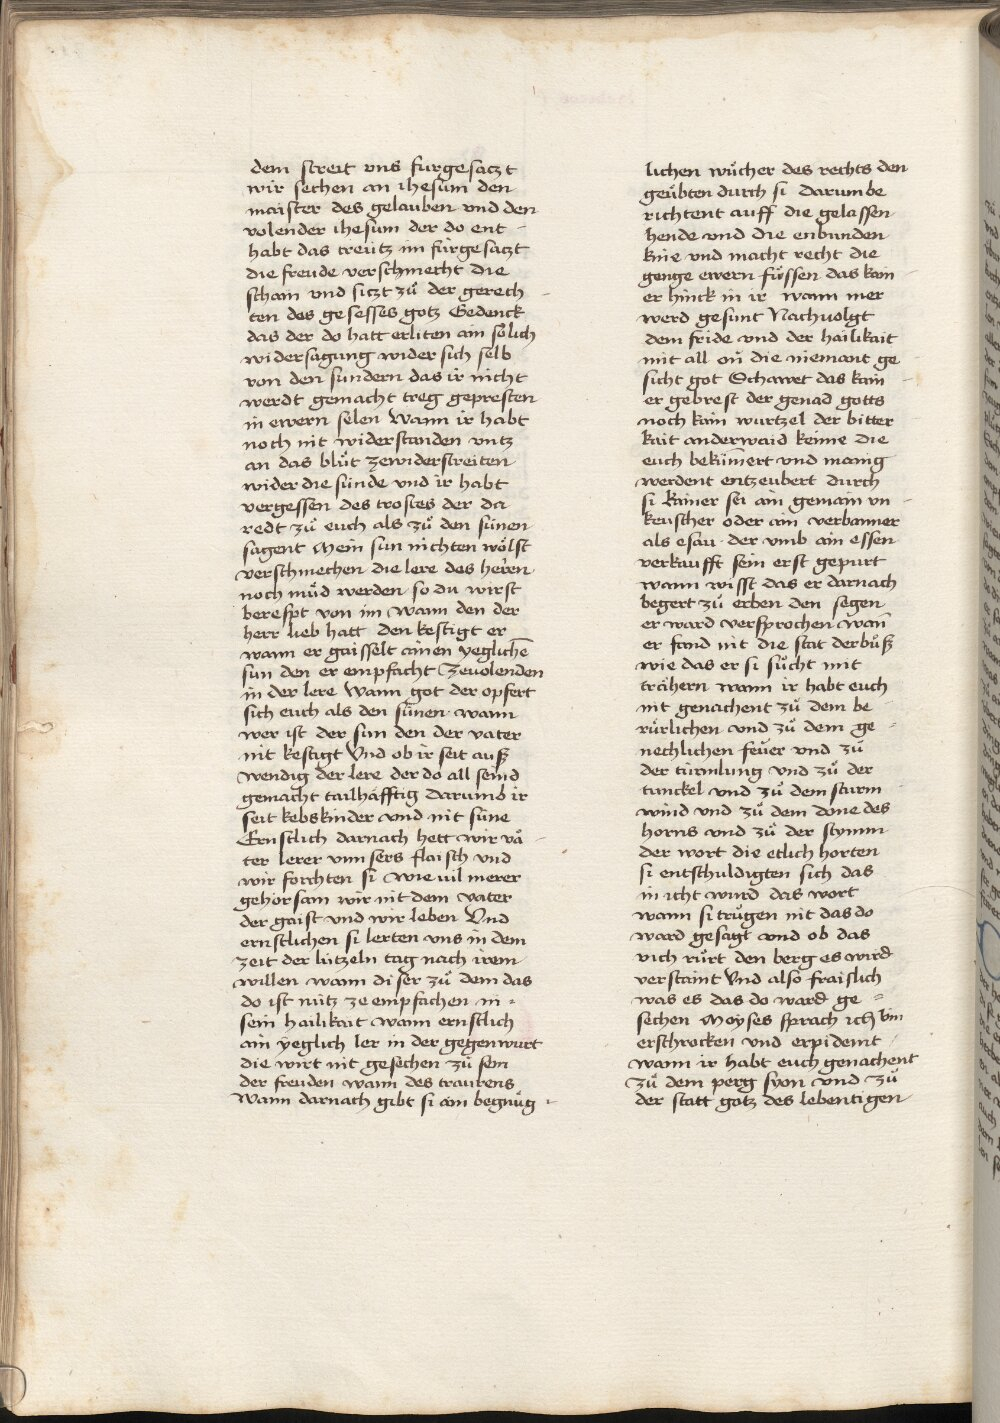 dem streit vns furgesaczt
wir sechen an ihesum den
maister des gelauben vnd den
volender ihesum der do ent
habt das creütz im fürgesaczt
die freude verschmecht die
scham vnd siczt zů der gerech
ten des gesesses gotz Gedenck
das der do hatt erliten ain sölich
widersagung wider sich selb
von den sundern das ir nicht
werdt gemacht treg gepresten
in ewern selen Wann ir habt
noch nit widerstanden vntz
an das blůt zewiderstreiten
wider die sünde vnd ir habt
vergessen des trostes der da
redt zů euch als zů den sünen
sagent Mein sun nichten wölst
verschmechen die lere des herren
noch müd werden so du wirst
berefpt von im Wann den der
herr lieb hatt den kestigt er
wann er gaisselt ainen yegliche
sun den er empfacht Zeuolenden
in der lere Wann got der opfert
sich euch als den sünen wann
wer ist der sun den der vater
nit kestigt Vnd ob ir seit auß
wendig der lere der do all seind
gemacht tailhäfftig Darumb ir
seit kebskinder vnd nit süne
Ernstlich darnach hett wir vä
ter lerer vnnsers flaisch vnd
wir forchten si wieuil merer
gehorsam wir nit dem vater
der gaist vnd wir leben Vnd
ernstlichen si lerten vns in dem
zeit der lützeln tag nach irem
willen wann diser zů dem das
do ist nütz ze empfachen in
sein hailikait wann ernstlich
ain yeglich ler in der gegenwurt
die wirt nit gesechen zů sein
der freuden wann des traurens
Wann darnach gibt si ain begnüg
lichen wůcher des rechts den
geübten durch si Darumbe
richtent auff die gelassen
hende vnd die enbunden
knie vnd macht recht die
genge ewern füssen das kain
er hinck in ir wann mer
werd gesunt Nachuolgt
dem fride vnd der hailikait
mit all on die niemant ge
sicht got Schawet das kain
er gebrest der genad gotts
noch kain wurtzel der bitter
kait anderwaid keime die
euch bekümert vnd manig
werdent entzeubert durch
si kainer sei ain gemain vn
keuscher oder ain verbanner
als esau der vmb ain essen
verkaufft sein erst gepurt
wann wisst das er darnach
begert zů erben den segen
er ward versprochen wan
er fand nit die stat der bůß
wie das er si sůcht mit
trähern wann ir habt euch
nit genachent zů dem be
rürlichen vnd zů dem ge
nechlichen feüer vnd zů
der türmlung vnd zů der
tunckel vnd zů dem sturm
wind vnd zů dem done des
horns vnd zů der stymm
der wort die etlich horten
si entschuldigten sich das
in icht wurd das wort
wann si trůgen nit das do
ward gesagt vnd ob das
vich rürt den berg es wird
verstaint Vnd also fraislich
was es das do ward ge
sechen Moyses sprach ich bin
erschrocken vnd erpidemt
wann ir habt euch genachent
zů dem perg syon vnd zů
der statt gotz des lebentigen